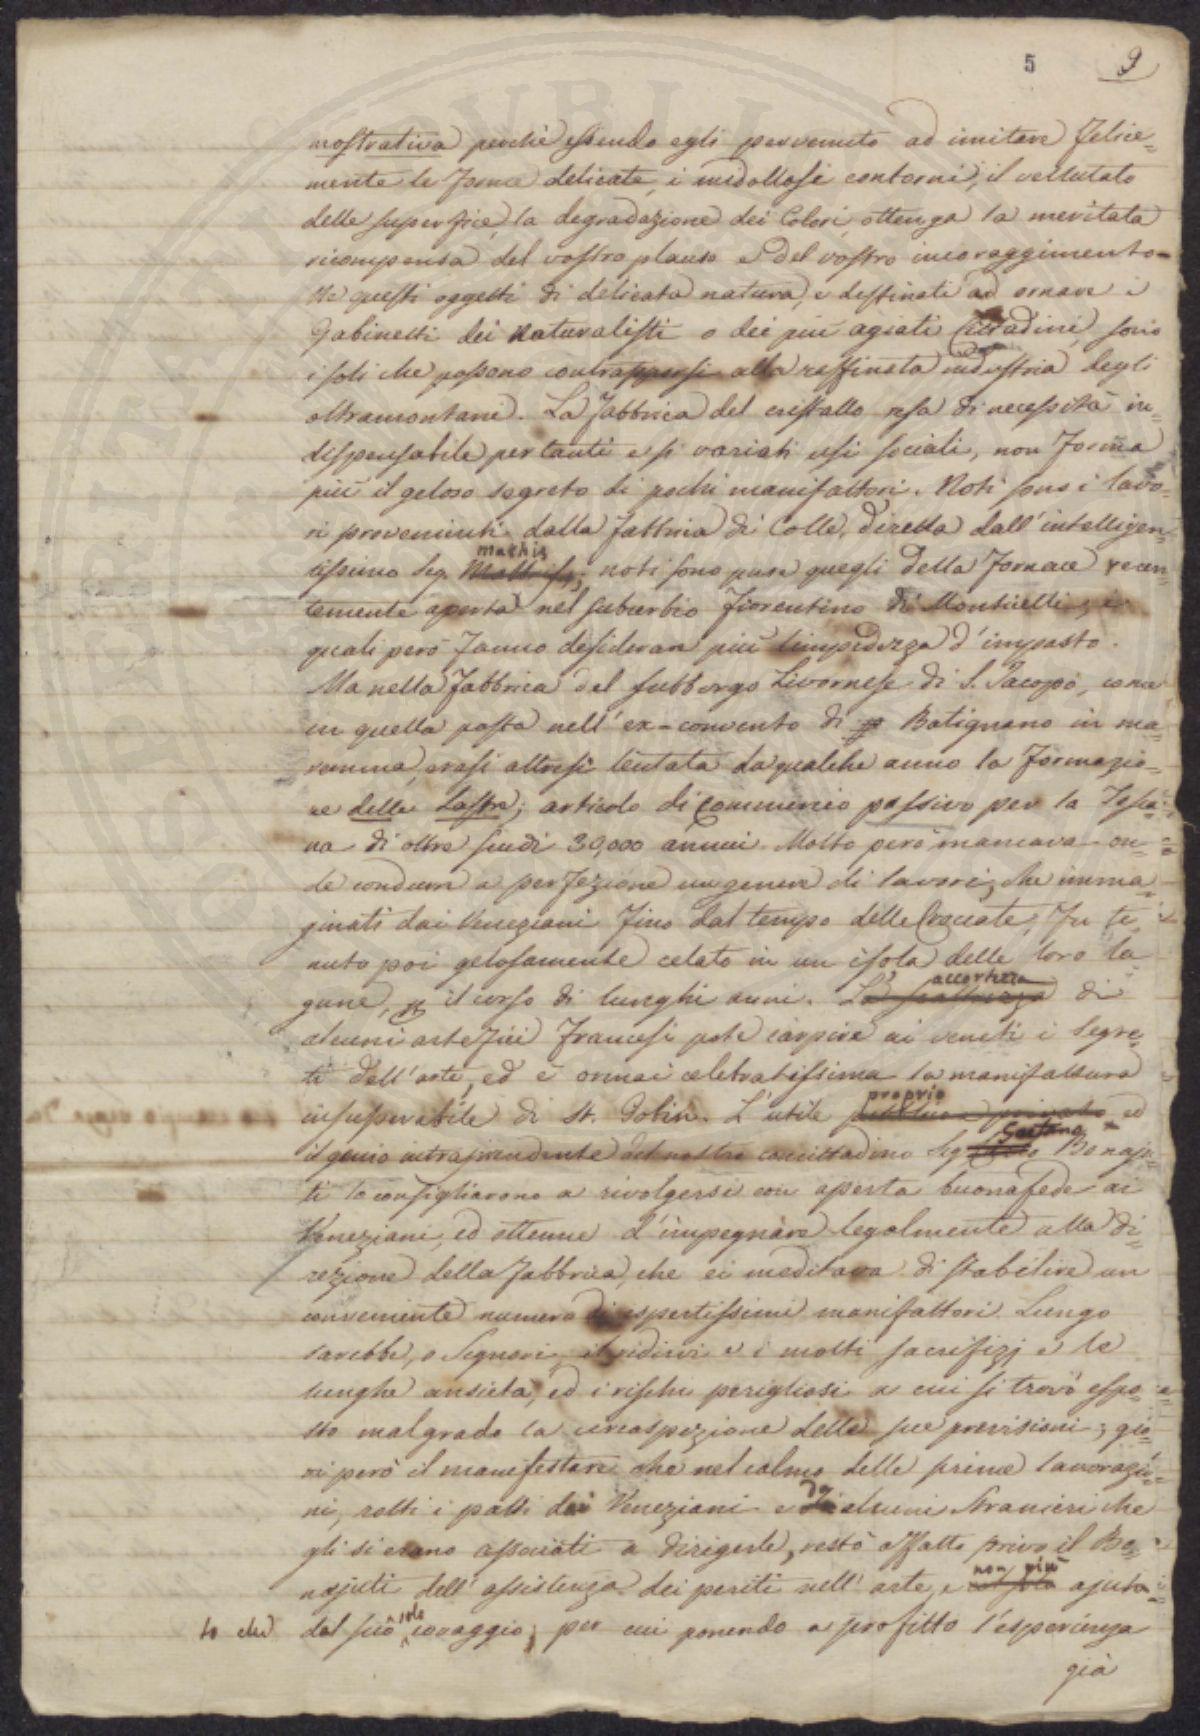 5 9
mostrativa perchè essendo egli pervenuto ad imitare felice=
mente le forme delicate, i midollosi contorni, il vellutato
delle superfice, la degradazione dei Colori, ottenga la meritata
ricompensa del vostro plauso e del vostro incoraggimento=
Nè questi oggetti di delicata natura, e destinati ad ornare i
Gabinetti dei Naturalisti o dei più agiati Cittadini, sono
i soli che possono contrapporsi alla raffinata industria degli
oltramontani. La fabbrica del cristallo resa di necessità in=
dispensabile per tanti e sì variati usi sociali, non forma
più il geloso segreto di pochi manifattori. Noti sono i lavo=
ri provenienti dalla fabbrica di Colle, diretta dall'intelligen=
mathis
tissimo Sig. noti sono pure quegli della fornace recen=
temente aperta nel suburbio fiorentino di Monticelli, i
quali però fanno desiderare più limpidezza d'impasto.
Ma nella fabbrica del subborgo Livornese di S. Jacopo, come
in quella posta nell'ex=convento di Batignano in ma=
remma, erasi altresì tentata da qualche anno la formazio=
ne delle Lastre; articolo di Commercio passivo per la Tosca=
na di oltre scudi 30,000 annui. Molto però mancava on=
de condurre a perfezione un genere di lavori, che imma=
ginati dai Veneziani fino dal tempo delle Crociate, fu te=
nuto poi gelosamente celato in un isola delle loro la=
accortezza
gune, il corso di lunghi anni. La di
alcuni artefici francesi potè carpire ai veneti i segre=
ti dell'arte, ed è ormai celebratissima la manifattura
proprio
insuperabile di St. Gobin. L'utile ed
Gaetano
il genio intraprendente del nostro concittadino Sig. Bonaju=
ti lo consigliarono a rivolgersi con aperta buonafede ai
Veneziani, ed ottenne d'impegnare legalmente alla di=
rezione della fabbrica, che ei meditava di stabilire un
conveniente numero di espertissimi manifattori. Lungo
sarebbe, o Signori, il ridirvi e i molti sacrifizj e le
lunghe ansietà, ed i rischi perigliosi a cui si trovò espo=
sto malgrado la circospezione delle sue previsioni; gio=
vi però il manifestare che nel colmo delle prime lavorazio=
ni, rotti i patti dai Veneziani e da alcuni stranieri che
gli si erano associati a dirigerle, restò affatto privo il Bo=
non più
najuti dell'assistenza dei periti nell'arte, e ajuta=
to che dal suo solo coraggio; per cui ponendo a profitto l'esperienza
già